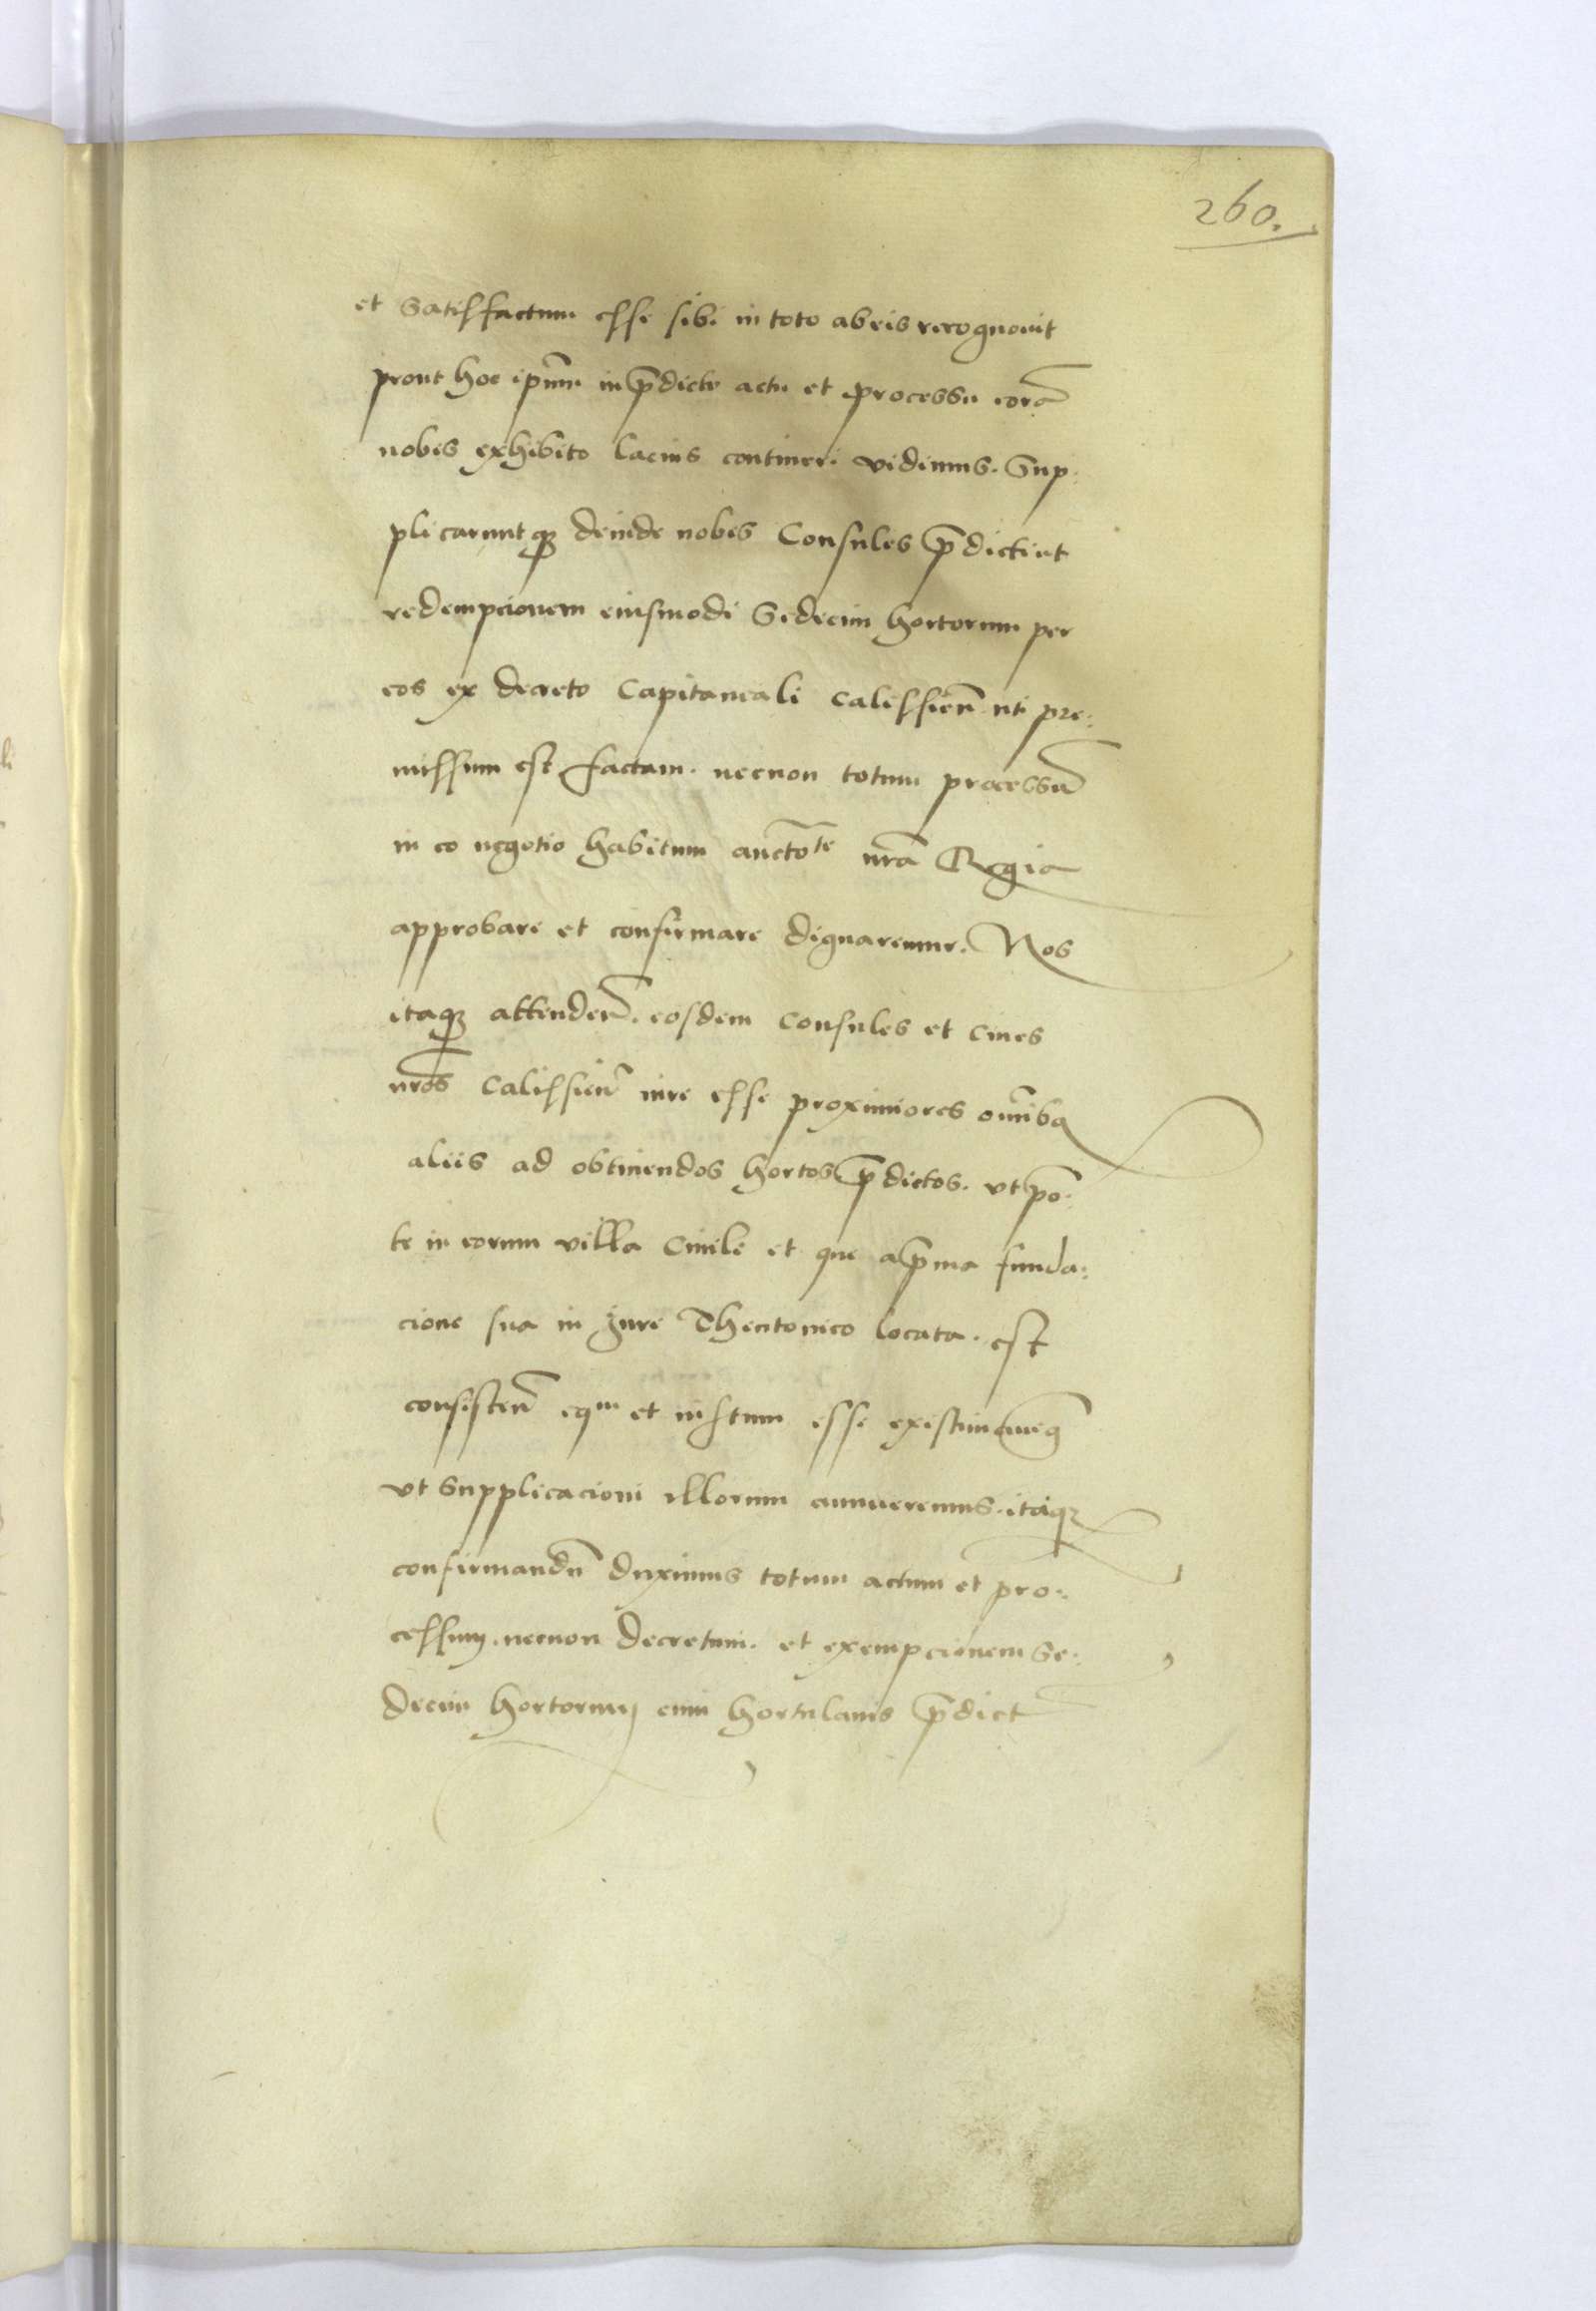 260.
et Satisfactum esse sibi in toto ab eis recognouit
prout hoc ip̄um in p̄dicto actu et processu corā
nobis exhibito lacius contineri vidimus. Sup:
plicaruntq deinde nobis Consules p̄dicti ut
redempcionem eiusmodi Sedecim hortorum per
eos ex decreto Capitaneali Calissien̄ uti pre:
missum est factam. necnon totum processū
in eo negotio habitum auctote nrā Regia
approbare et confirmare dignaremur. Nos
itaq attenden̄. eosdem Consules et Ciues
nros̄ Calissien̄ iure esse proximiores om̄ibq
aliis ad obtinendos hortos p̄dictos. vt po:
te in eorum villa Ciuili et que a p̄ma funda:
cione sua in Jure Theutonico locata. est
consisten̄ equm et iustum esse existimauimq
vt Supplicacioni illorum annueremus. itaq
confirmandū duximus totum actum et pro:
cessum. necnon decretum. et exempcionem Se:
decim hortorum cum hortulanis p̄dict